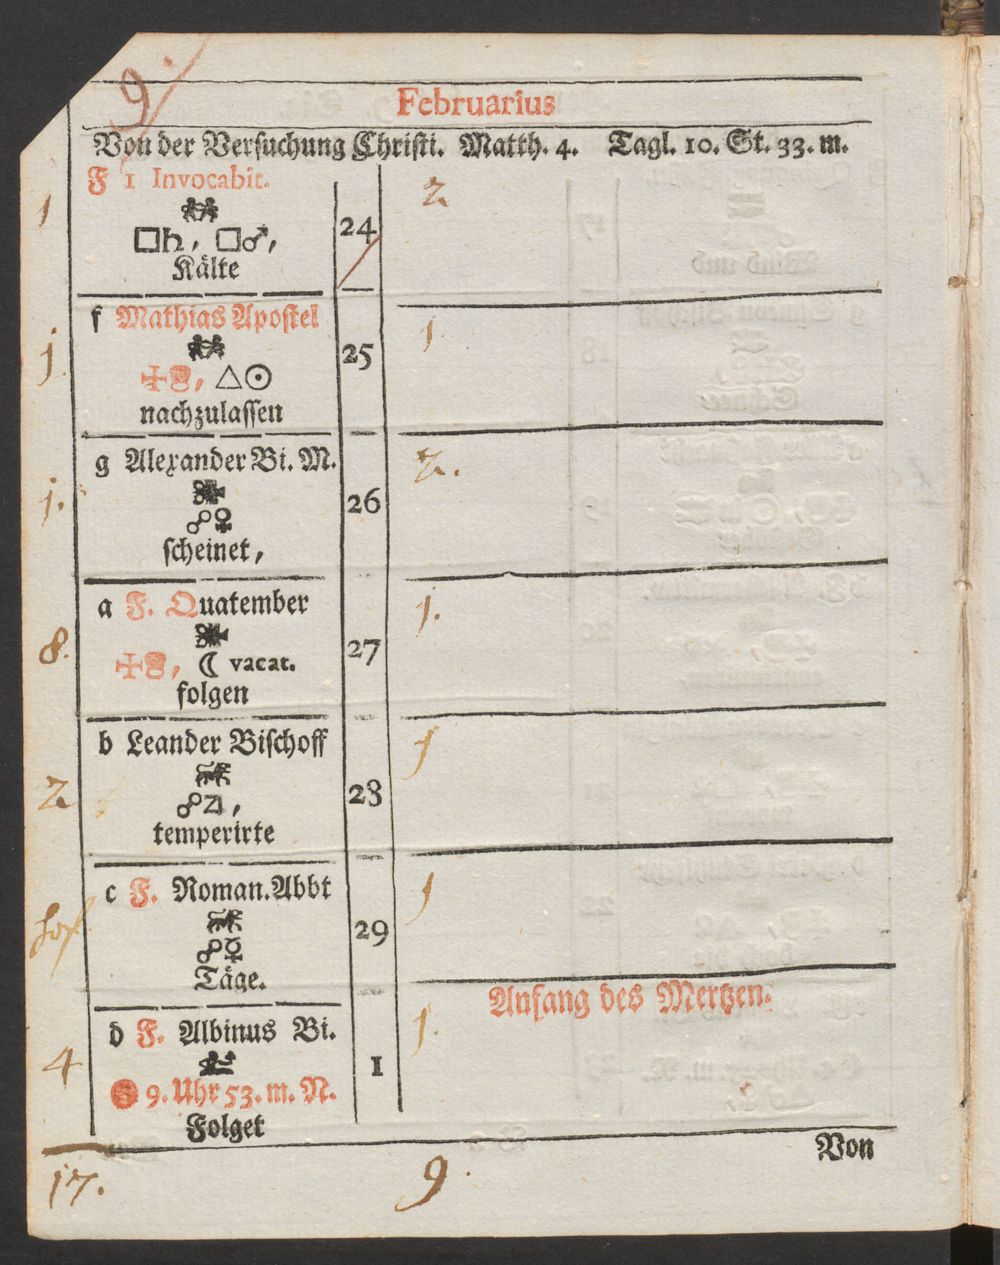 9.
Februarius
Von der Versuchung Christi. Matth. 4. Tagl. 10. St. 33. m.
1 F 1 Invocabit. 24 2
□♄, □♂,
Kälte
j f Mathias Apostel 25 1.
△☉
nachzulassen
j. g Alexander Bi. M. 26 2.
☍♀
scheinet,
8. a F. Quatember 27 1.
☾ vacat.
folgen
2 b Leander Bischoff 28 1
☍♃,
temperirte
c F. Roman. Abbt 29 1
☍☿
Täge.
Anfang des Mertzen.
4 d F. Albinus Bi. 1 1.
9. Uhr 53. m. N.
Folget
Von
17. 9.